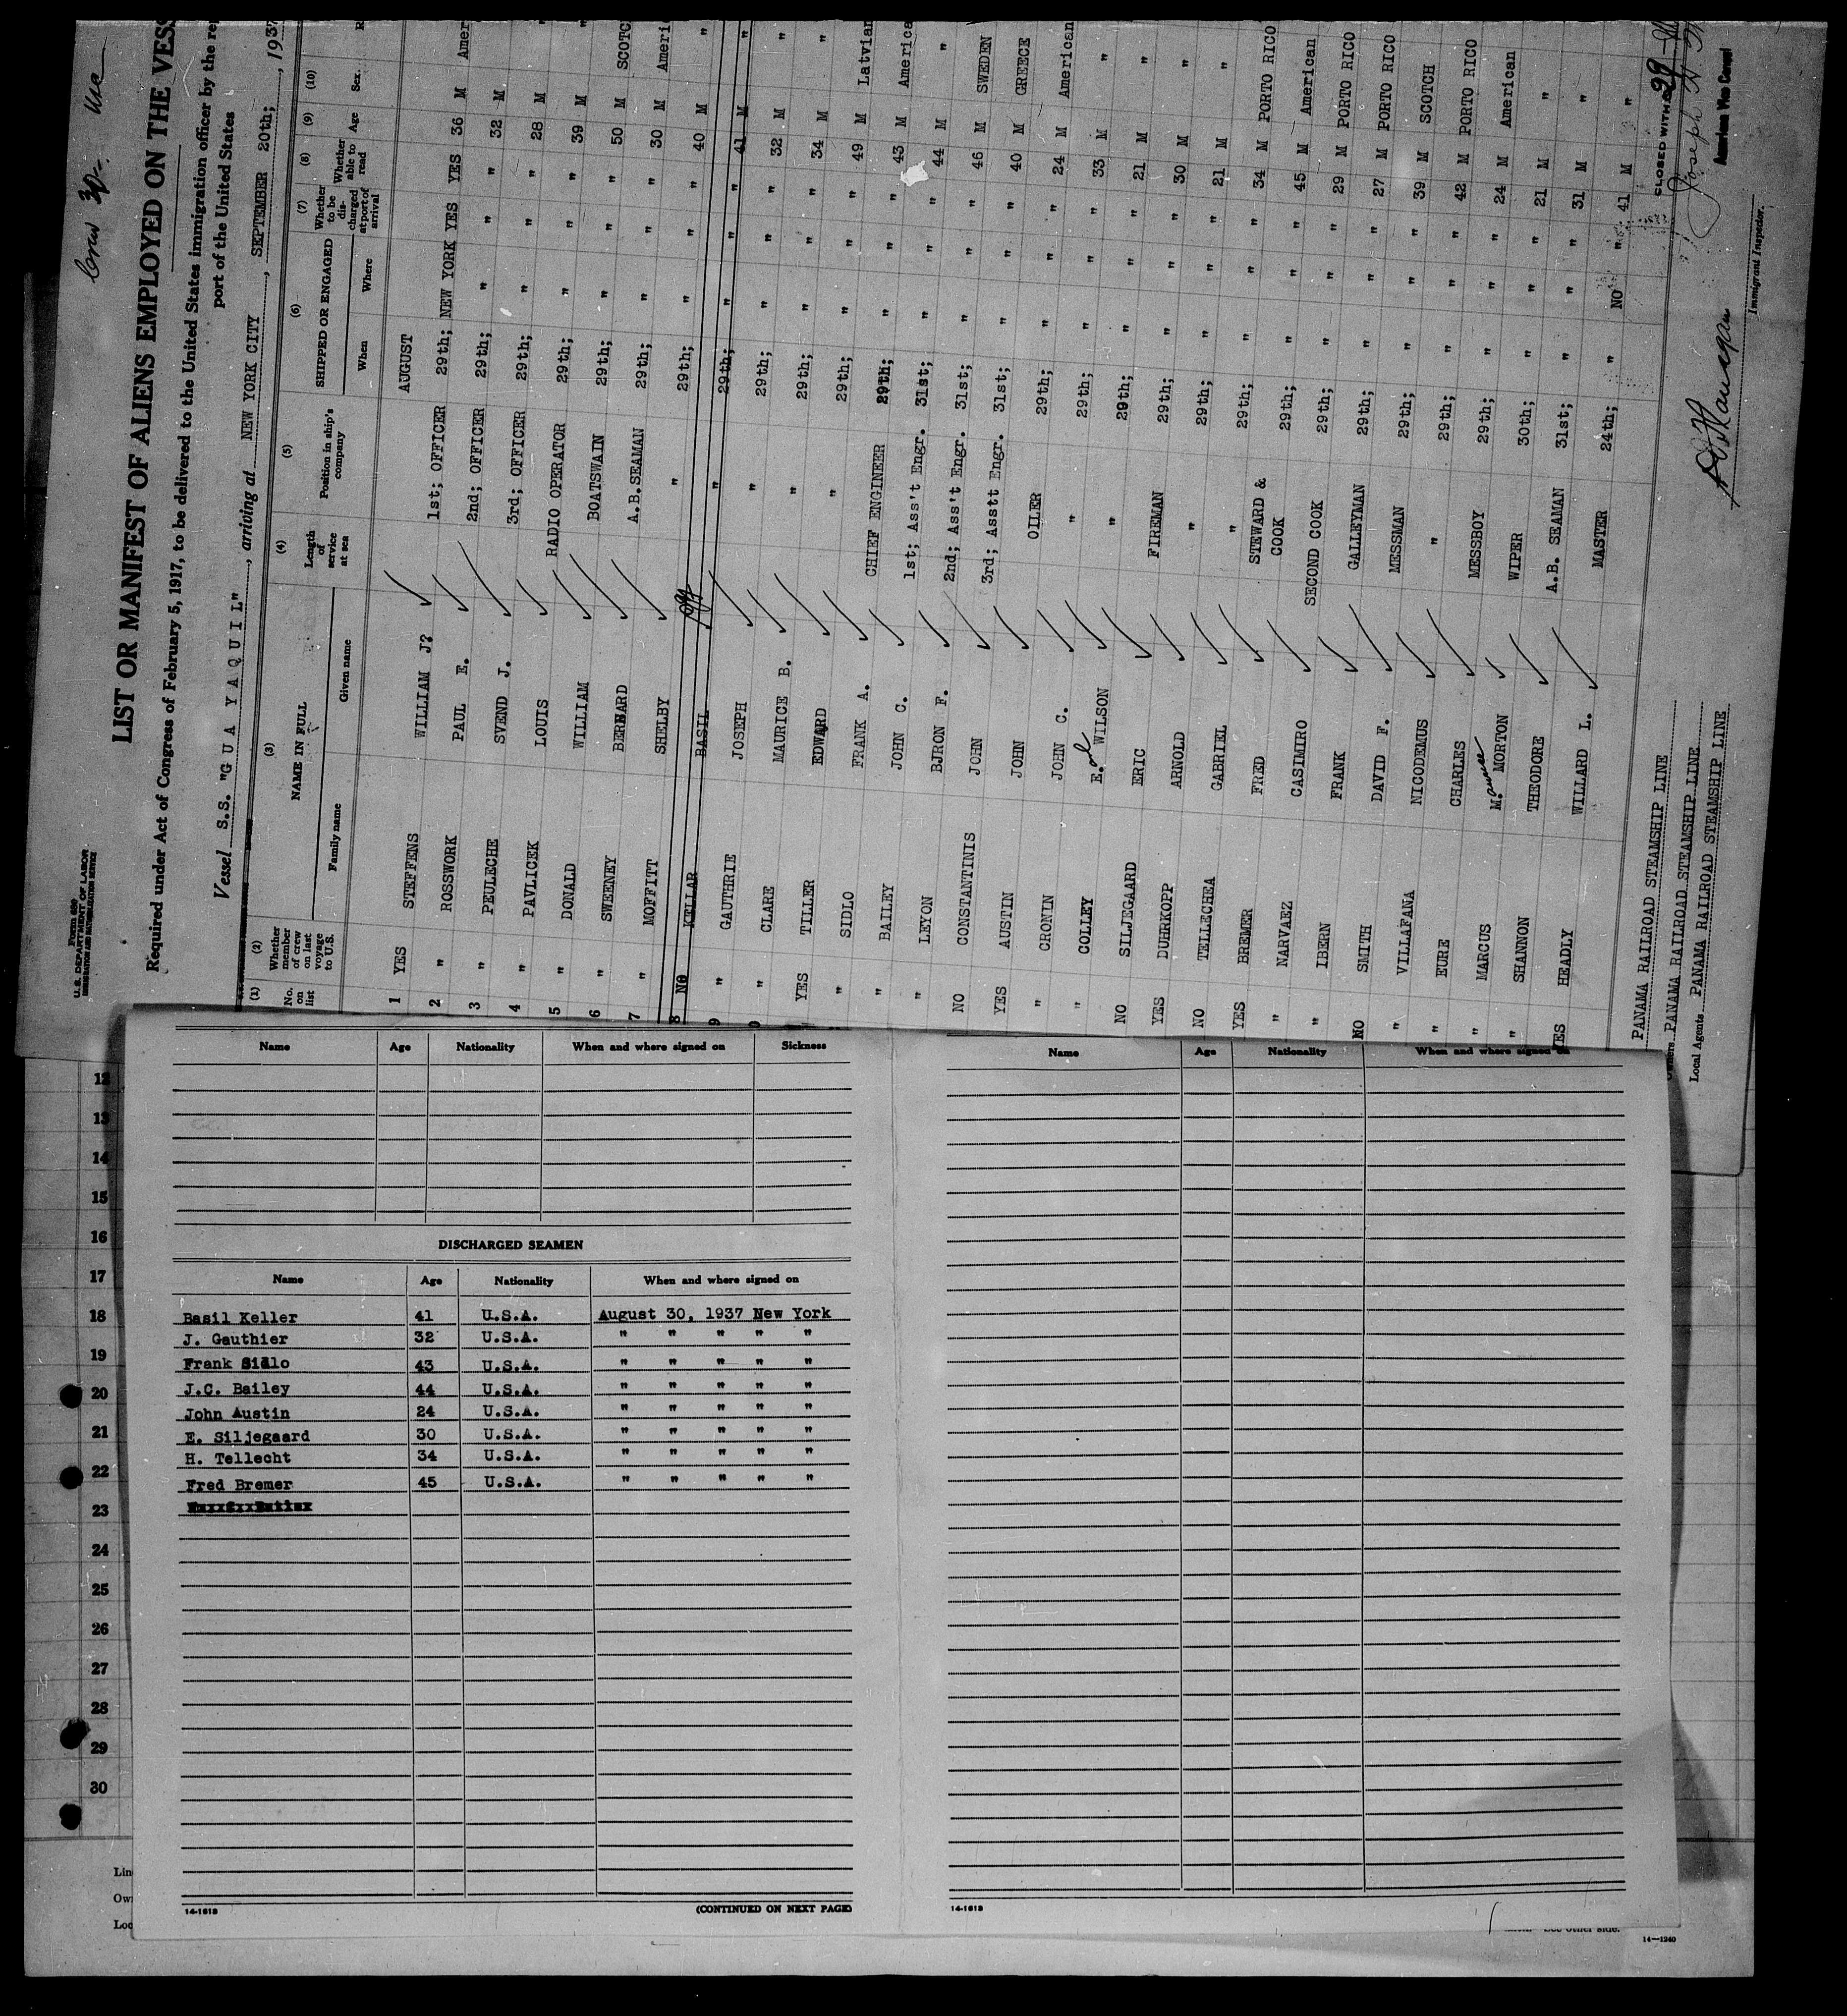 Form 680
U.S. DEPARTMENT OF LABOR
IMMIGRATION AND NATURALIZATION SERVICE
LIST OR MANIFEST OF ALIENS EMPLOYED ON THE VESS
Required under Act of Congress of February 5, 1917, to be delivered to the United States immigration officer by the re
port of the United States
Vessel S.S. "G U A Y A Q U I L", arriving at NEW YORK CITY, SEPTEMBER 20th;, 1937
(1) (2) (3) (4) (5) (6) (7) (8) (9) (10)
No. on list Whether member of crew on last voyage to U.S. NAME IN FULL Family name Given name Length of service at sea Position in ship's company SHIPPED OR ENGAGED When Where Whether to be discharged at port of arrival Whether able to read Age Sex R
AUGUST
1 YES STEFFENS WILLIAM J? 1st; OFFICER 29th; NEW YORK YES YES 36 M Amer
2 " ROSSWORK PAUL E. 2nd; OFFICER 29th; " " " 32 M "
3 " PEULECHE SVEND J. 3rd; OFFICER 29th; " " " 28 M "
4 " PAVLICEK LOUIS RADIO OPERATOR 29th; " " " 39 M "
5 " DONALD WILLIAM BOATSWAIN 29th; " " " 50 M SCOTC
6 " SWEENEY BERNARD A.B.SEAMAN 29th; " " " 30 M Ameri
7 " MOFFITT SHELBY " 29th; " " " 40 M "
8 NO KELLAR BASIL " 29th; " " " 41 M "
9 " GAUTHRIE JOSEPH " 29th; " " " 32 M "
0 " CLARE MAURICE B. " 29th; " " " 34 M "
YES TILLER EDWARD " 29th; " " " 49 M Latvian
" SIDLO FRANK A. CHIEF ENGINEER 29th; " " " 43 M America
" BAILEY JOHN C. 1st; Ass't Engr. 31st; " " " 44 M "
" LEYON BJRON F. 2nd; Ass't Engr. 31st; " " " 46 M SWEDEN
NO CONSTANTINIS JOHN 3rd; Asstt Engr. 31st; " " " 40 M GREECE
YES AUSTIN JOHN OILER 29th; " " " 24 M American
" CRONIN JOHN C. " 29th; " " " 33 M "
" COLLEY E. WILSON " 29th; " " " 21 M "
NO SILJEGAARD ERIC FIREMAN 29th; " " " 30 M "
YES DUHRKOPP ARNOLD " 29th; " " " 21 M "
NO TELLECHEA GABRIEL " 29th; " " " 34 M PORTO RICO
YES BREMER FRED STEWARD & COOK 29th; " " " 45 M American
" NARVAEZ CASIMIRO SECOND COOK 29th; " " " 29 M PORTO RICO
" IBERN FRANK GALLEYMAN 29th; " " " 27 M PORTO RICO
NO SMITH DAVID F. MESSMAN 29th; " " " 39 M SCOTCH
" VILLAFANA NICODEMUS " 29th; " " " 42 M PORTO RICO
" EURE CHARLES MESSBOY 29th; " " " 24 M American
" MARCUS M. MORTON WIPER 30th; " " " 21 M "
" SHANNON THEODORE A.B. SEAMAN 31st; " " " 31 M "
YES HEADLY WILLARD L. MASTER 24th; " NO " 41 M "
CLOSED WITH 29
PANAMA RAILROAD STEAMSHIP LINE
Owners PANAMA RAILROAD STEAMSHIP LINE
Local Agents PANAMA RAILROAD STEAMSHIP LINE
Immigrant Inspector.
American Vice Consul
12
13
14
15
16
17
18
19
20
21
22
23
24
25
26
27
28
29
30
Name Age Nationality When and where signed on Sickness
DISCHARGED SEAMEN
Name Age Nationality When and where signed on
Basil Keller 41 U.S.A. August 30, 1937 New York
J. Gauthier 32 U.S.A. " " " " "
Frank Sidlo 43 U.S.A. " " " " "
J.C. Bailey 44 U.S.A. " " " " "
John Austin 24 U.S.A. " " " " "
E. Siljegaard 30 U.S.A. " " " " "
H. Tellecht 34 U.S.A. " " " " "
Fred Bremer 45 U.S.A. " " " " "
14-1613
(CONTINUED ON NEXT PAGE)
Name Age Nationality When and where signed on
14-1613
Lin
Ow
Loc
See other side.
14-1240